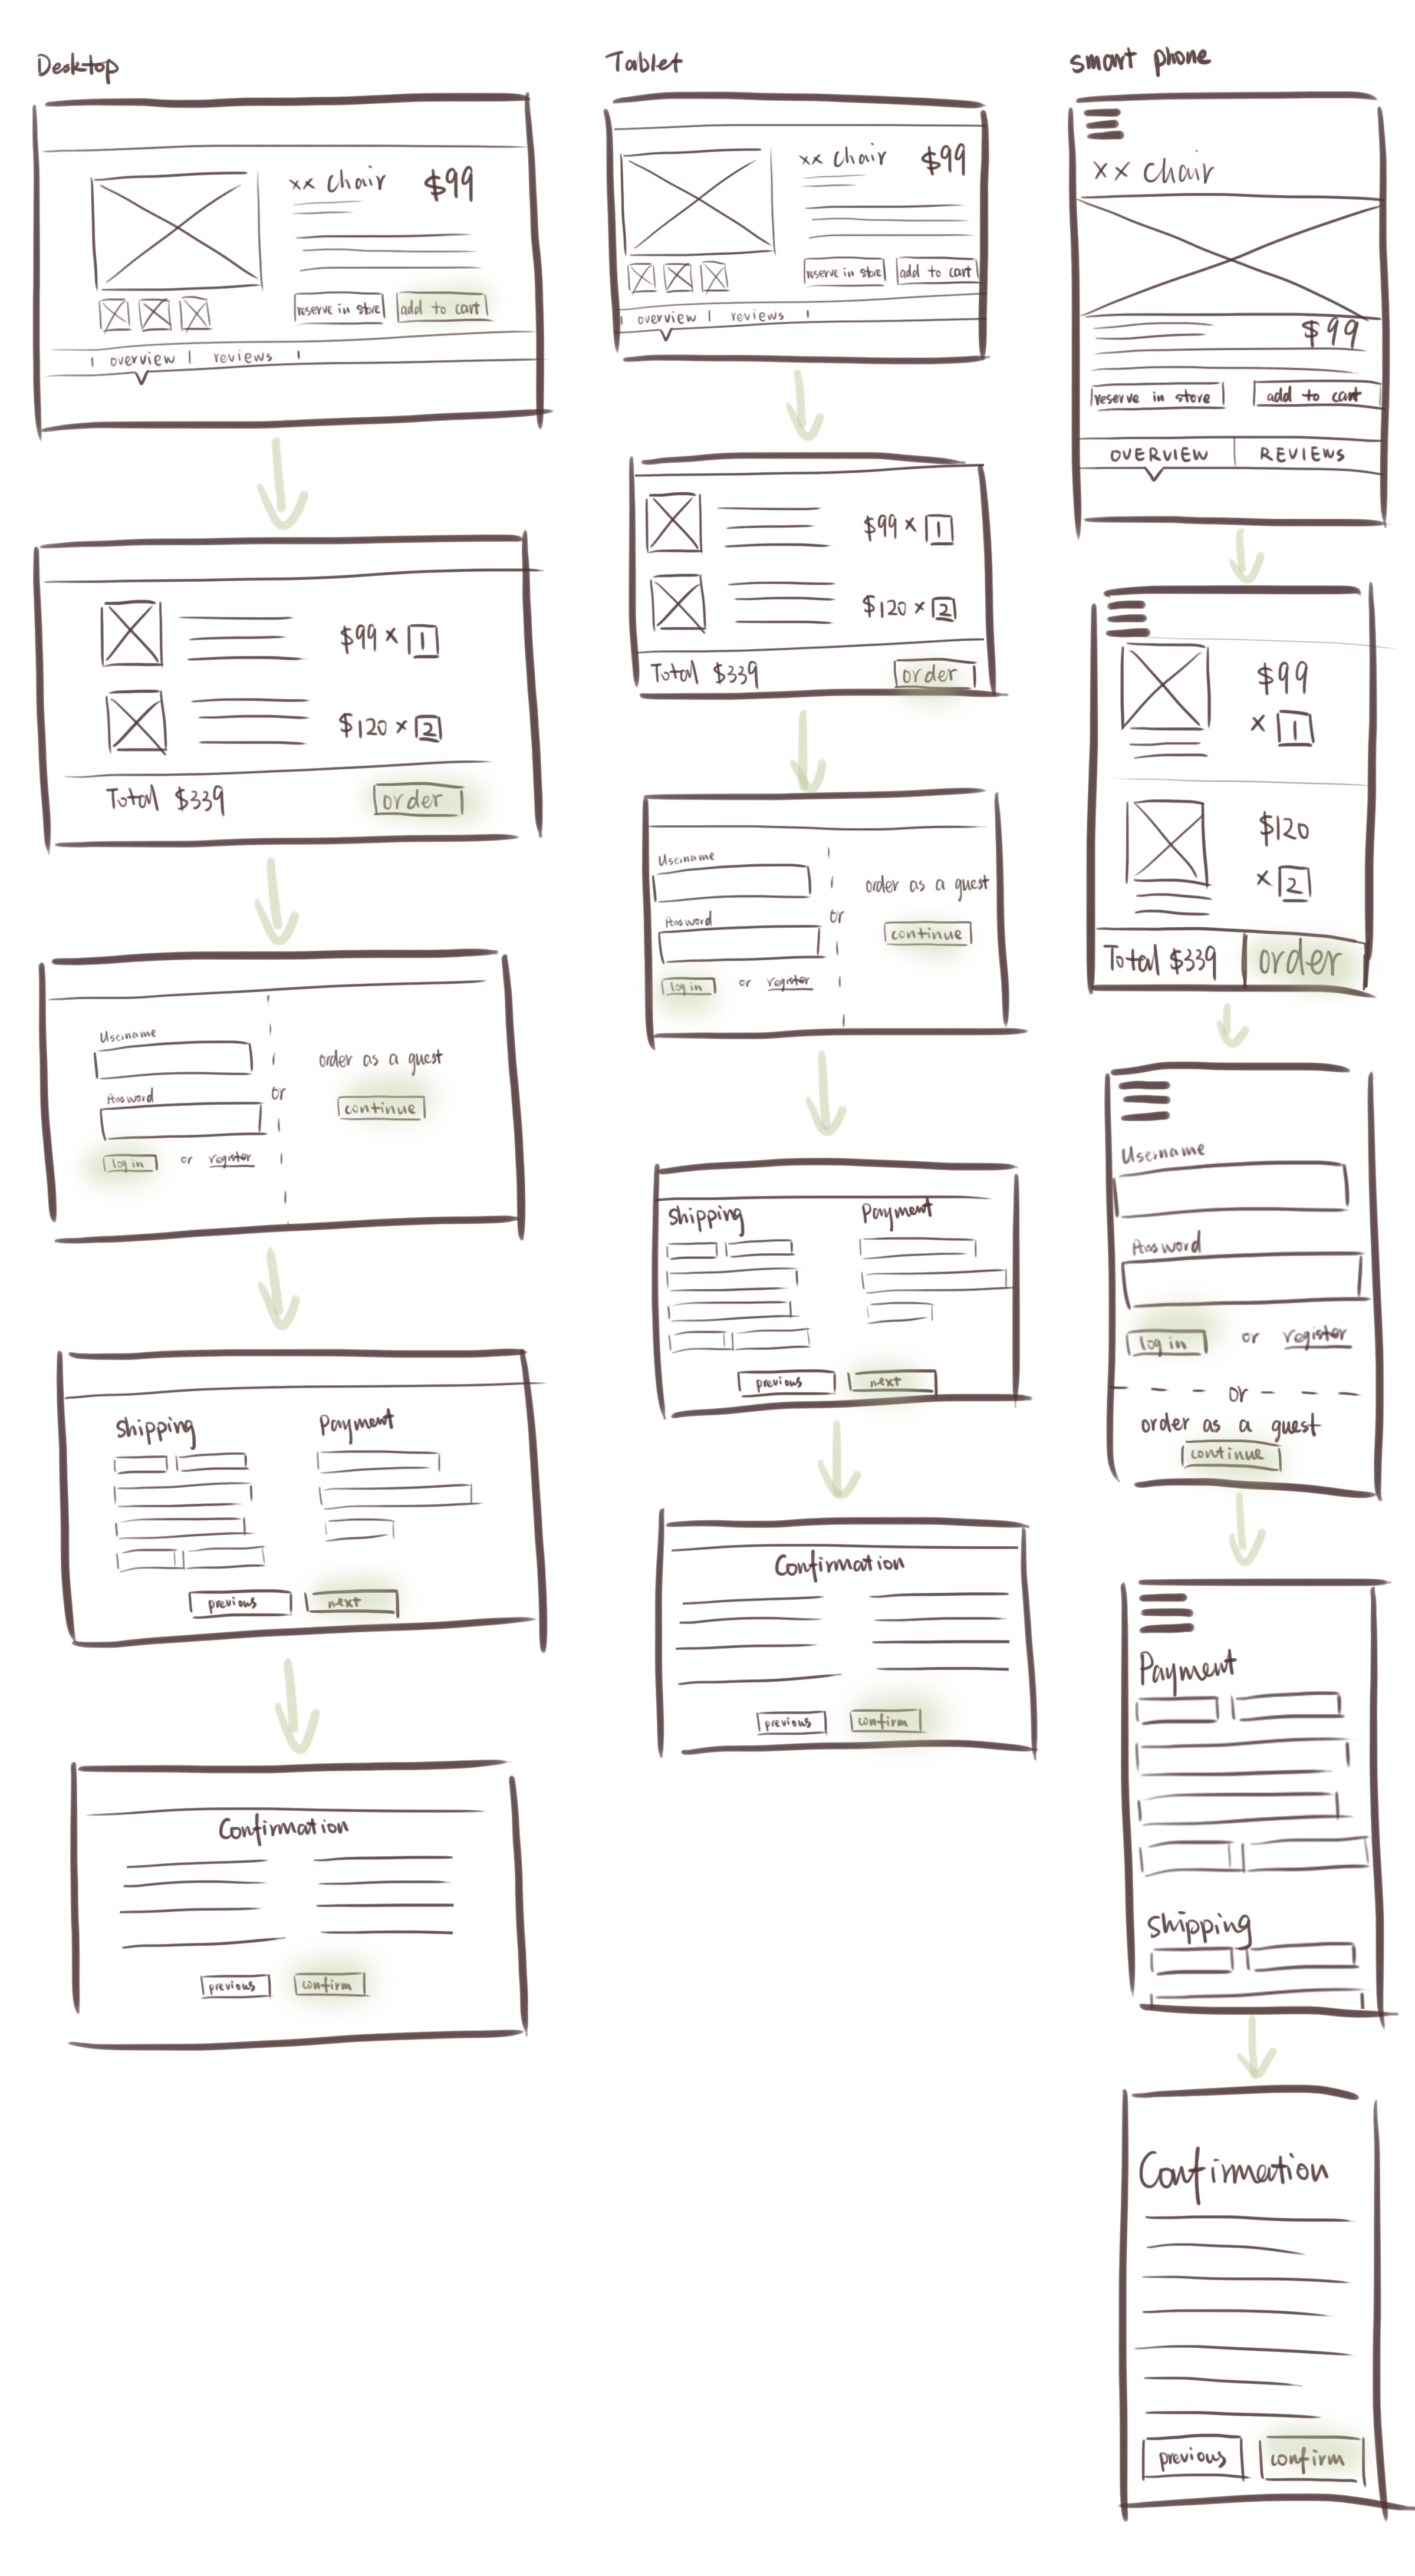 Desktop
xx chair $99
reserve in store add to cart
overview | reviews
$99 × 1
$120 × 2
Total $339 order
Username
Password
log in or register
or
order as a guest
continue
shipping Payment
previous next
Confirmation
previous confirm
Tablet
xx chair $99
reserve in store add to cart
overview | reviews
$99 × 1
$120 × 2
Total $339 order
Username
Password
log in or register
or
order as a guest
continue
shipping Payment
previous next
Confirmation
previous confirm
smart phone
xx chair
$99
reserve in store add to cart
OVERVIEW REVIEWS
$99
× 1
$120
× 2
Total $339 order
Username
Password
log in or register
or
order as a guest
continue
Payment
shipping
Confirmation
previous confirm